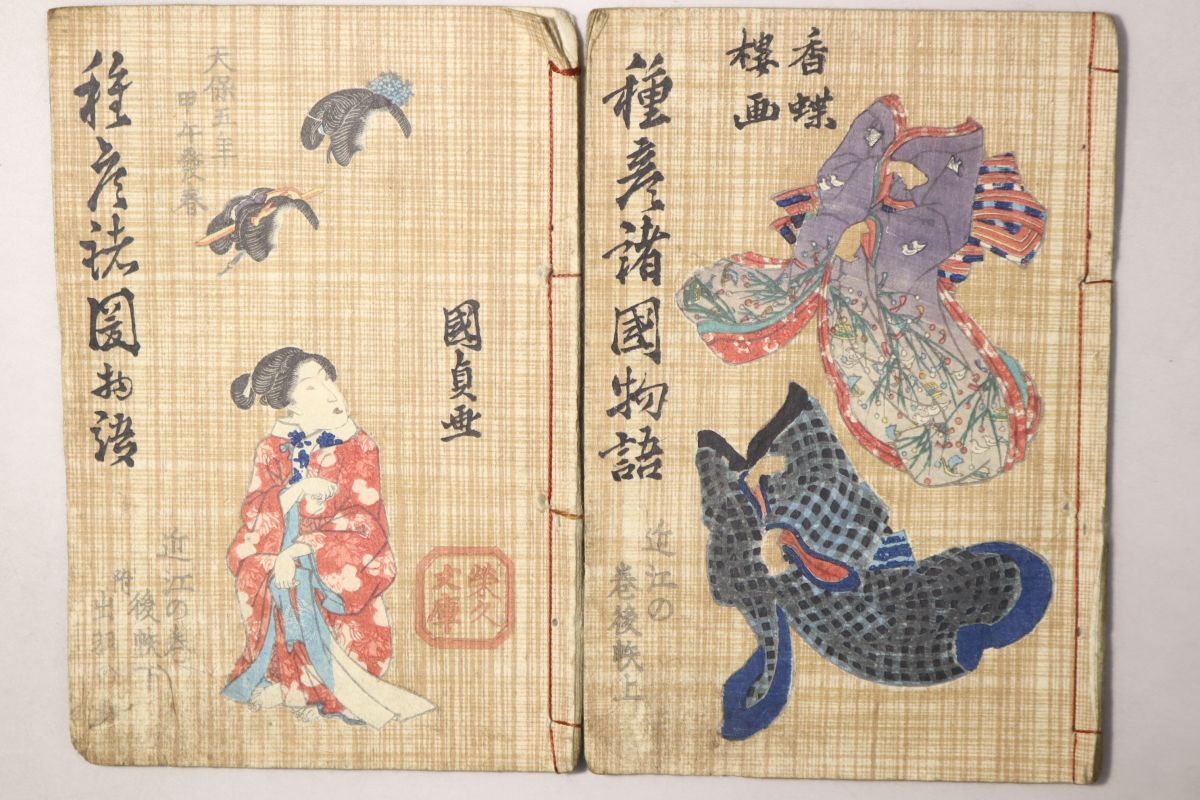 香蝶
樓画
種彦諸國物語
近江の
巻後帙上
天保五年
甲午發春
種彦諸國物語
國貞画
近江の巻
後帙下
附出羽
榮久
文庫